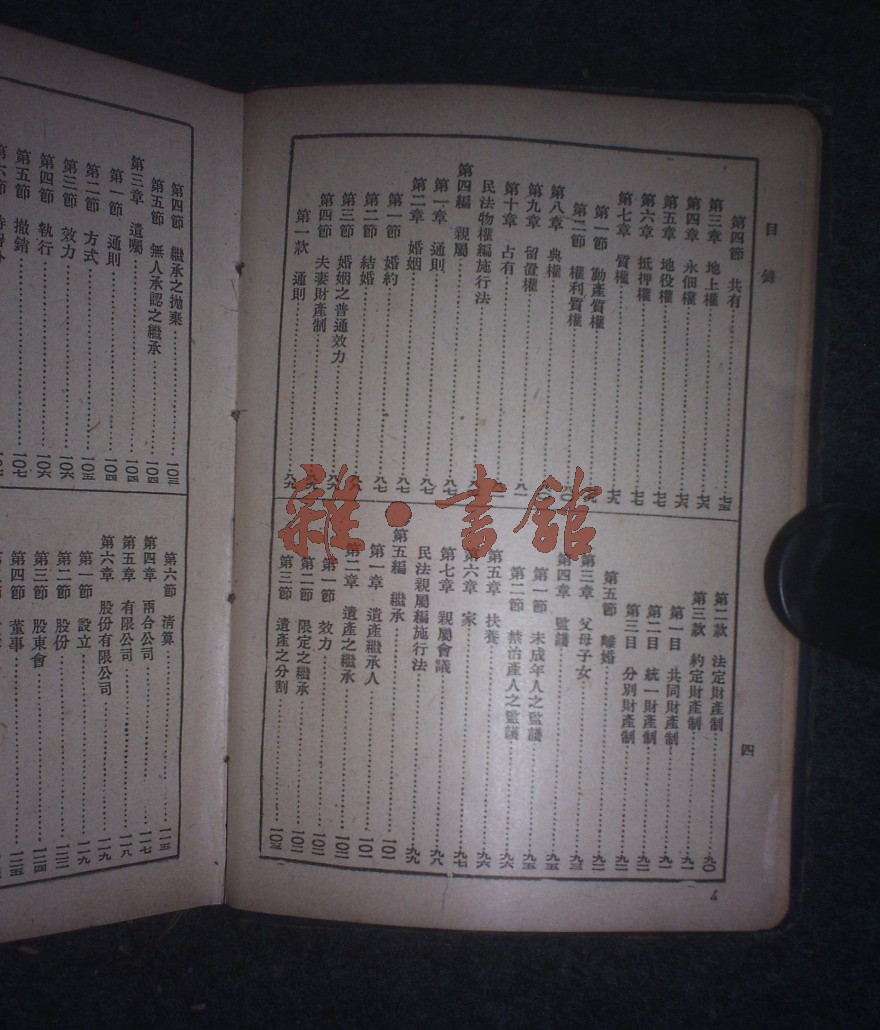 目錄
第四節 共有 七五
第三章 地上權 七六
第四章 永佃權 七六
第五章 地役權 七七
第六章 抵押權 七七
第七章 質權 七九
第一節 動產質權
第二節 權利質權
第八章 典權
第九章 留置權
第十章 占有 八一
民法物權編施行法
第四編 親屬
第一章 通則 八七
第二章 婚姻 八七
第一節 婚約 八七
第二節 結婚 八八
第三節 婚姻之普通效力
第四節 夫妻財產制
第一款 通則 八九
第二款 法定財產制 九〇
第三款 約定財產制 九一
第一目 共同財產制 九一
第二目 統一財產制 九二
第三目 分別財產制 九二
第五節 離婚 九二
第三章 父母子女 九三
第四章 監護 九五
第一節 未成年人之監護 九五
第二節 禁治產人之監護 九六
第五章 扶養 九六
第六章 家 九七
第七章 親屬會議 九八
民法親屬編施行法 九九
第五編 繼承 一〇一
第一章 遺產繼承人 一〇一
第二章 遺產之繼承 一〇二
第一節 效力 一〇二
第二節 限定之繼承 一〇二
第三節 遺產之分割 一〇三
四
雜·書館
第四節 繼承之拋棄 一〇三
第五節 無人承認之繼承 一〇四
第三章 遺囑 一〇四
第一節 通則 一〇四
第二節 方式 一〇五
第三節 效力 一〇六
第四節 執行 一〇六
第五節 撤銷 一〇七
第六節
第六節 清算 一一五
第四章 兩合公司 一一七
第五章 有限公司 一一八
第六章 股份有限公司 一一九
第一節 設立 一一九
第二節 股份 一二二
第三節 股東會 一二四
第四節 董事 一二五